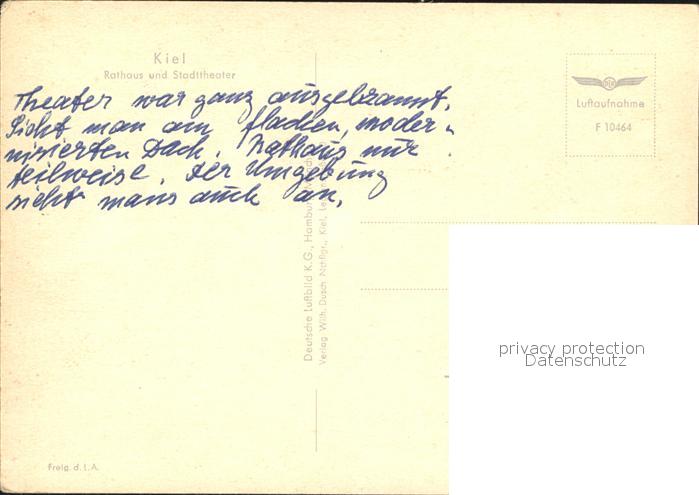 Kiel
Rathaus und Stadttheater
Theater war ganz ausgebrannt.
Sieht man am flachen, moder-
nisierten Dach. Rathaus nur
teilweise. Der Umgebung
sieht mans auch an.
Luftaufnahme
F 10464
Deutsche Luftbild K.G., Hamburg
Verlag Wilh. Dusch Nchflgr., Kiel,
privacy protection
Datenschutz
Freig. d. L.A.